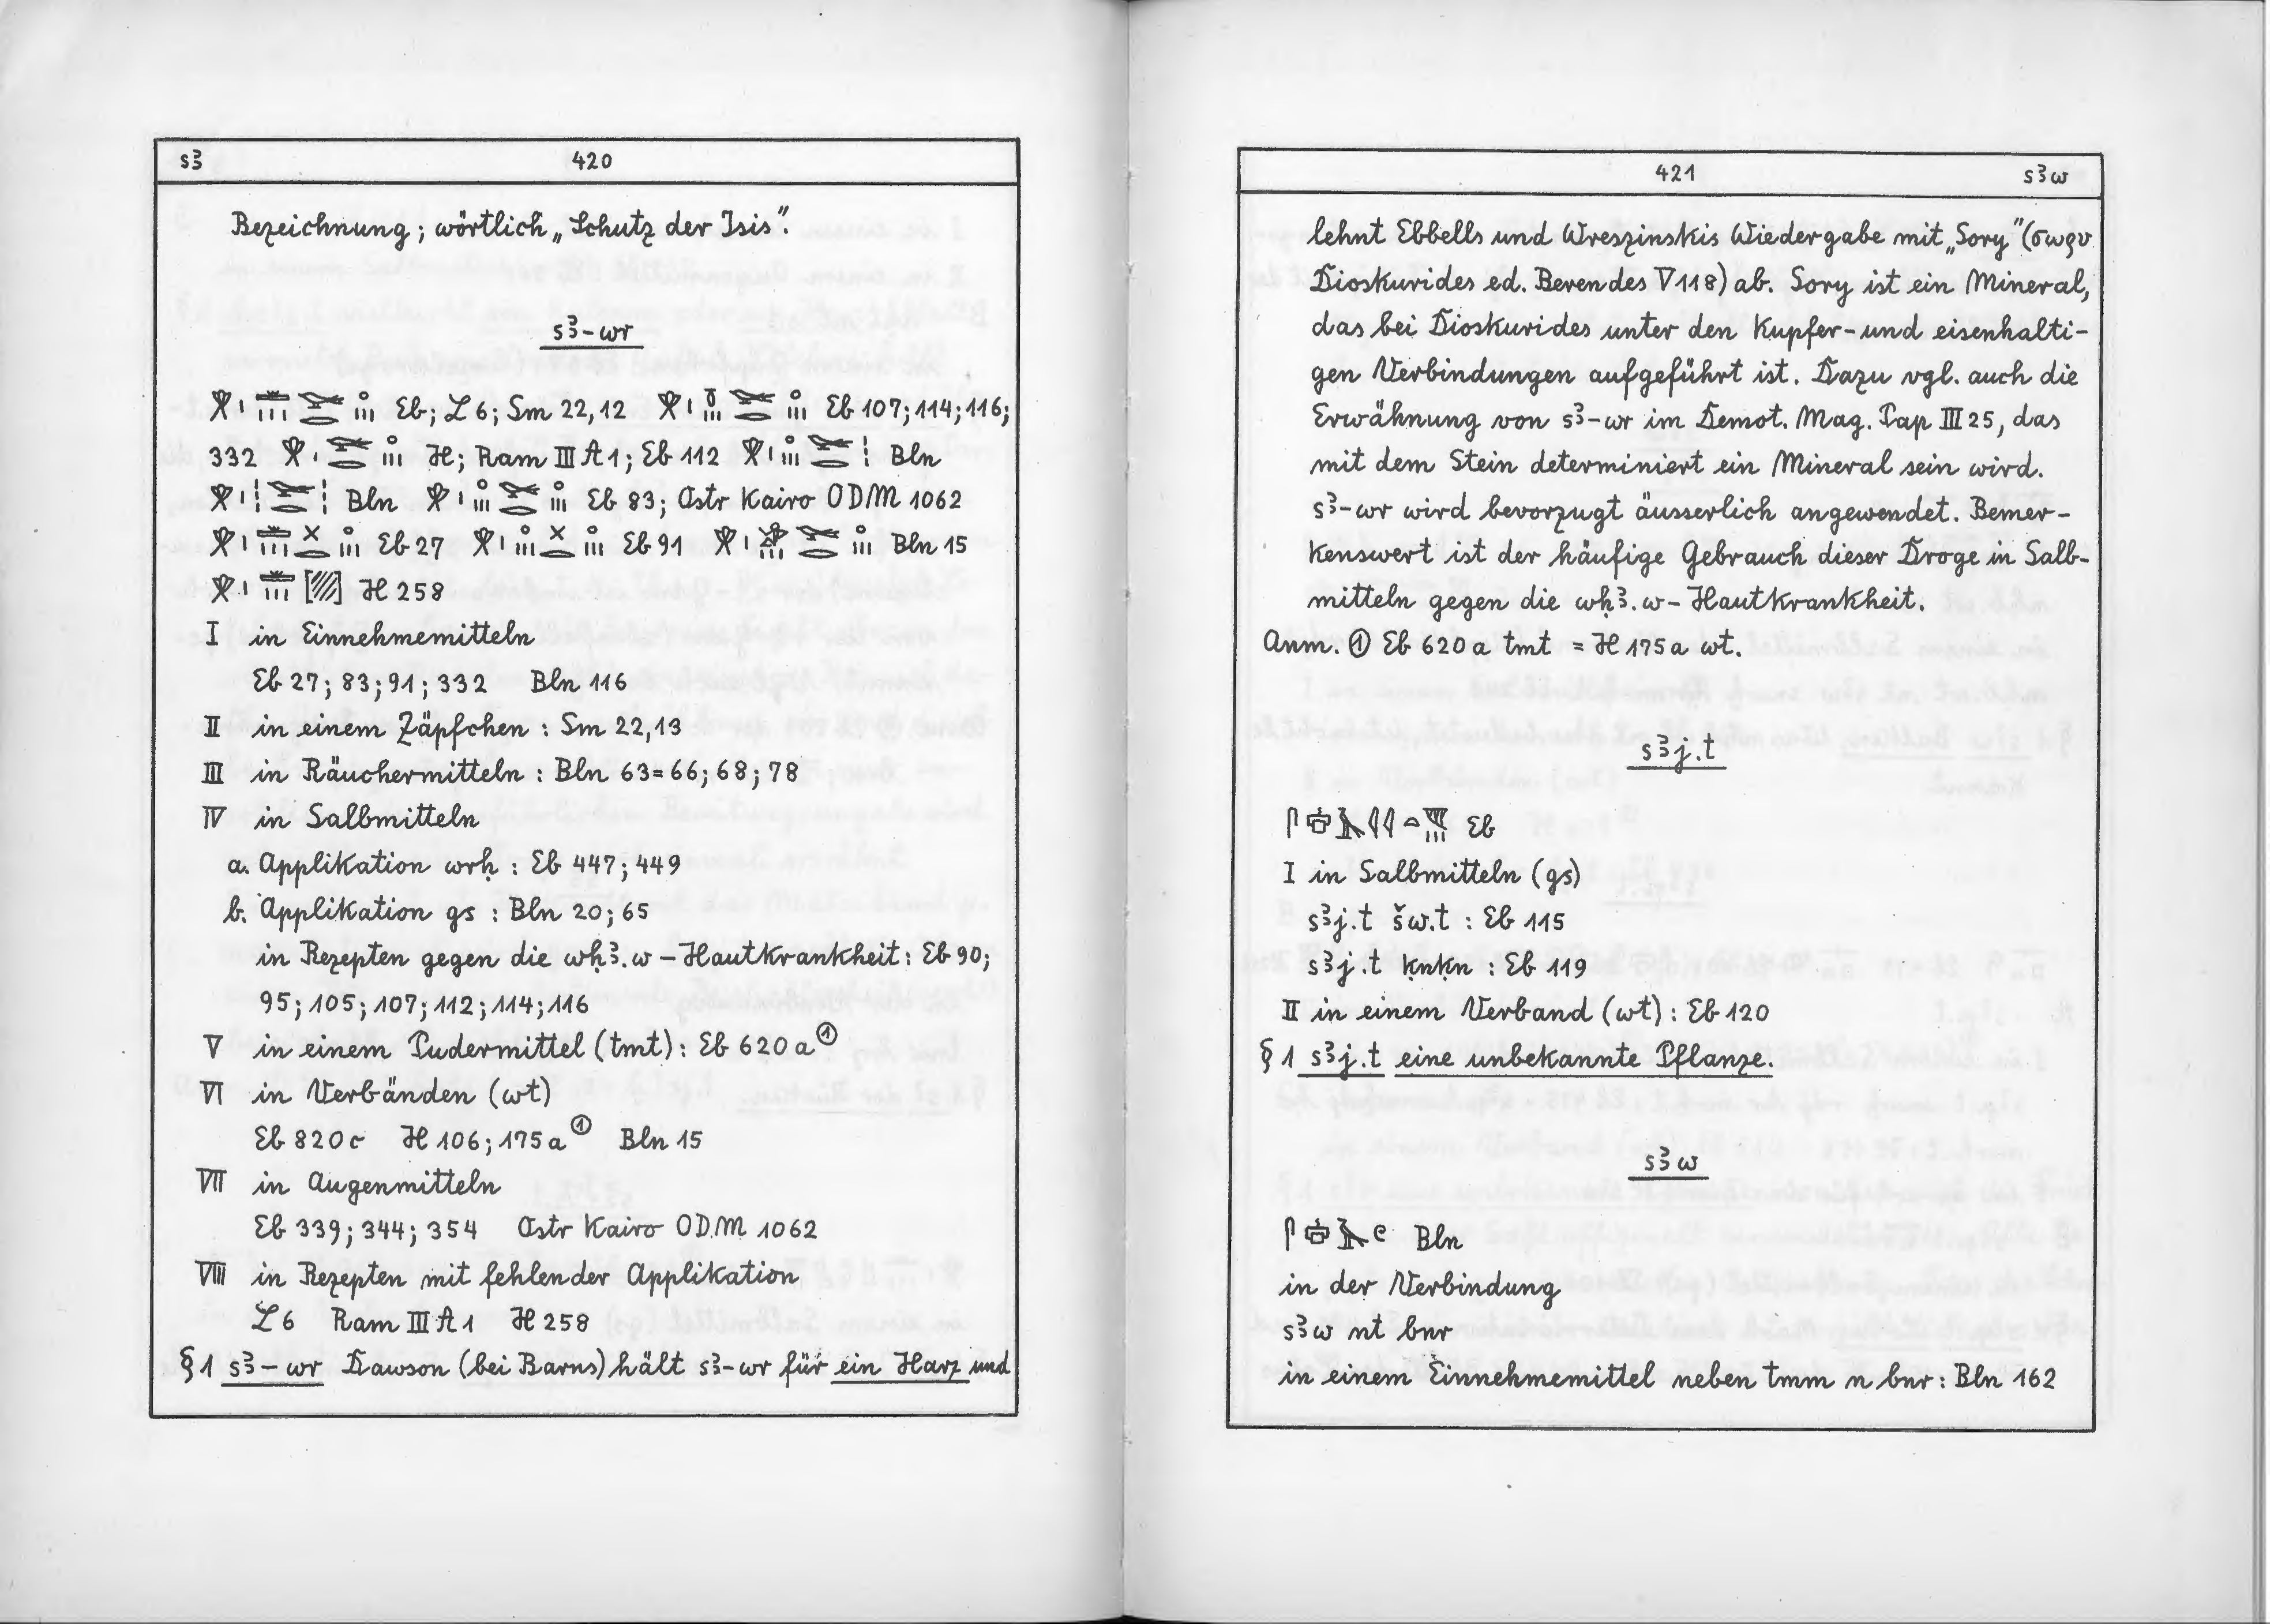 sꜣ 420
Bezeichnung; wörtlich „Schutz der Isis".
sꜣ-wr
Eb; L 6; Sm 22,12 Eb 107; 114; 116;
332 H; Ram III A 1; Eb 112 Bln
Bln Eb 83; Ostr Kairo ODM 1062
Eb 27 Eb 91 Bln 15
H 258
I in Einnehmemitteln
Eb 27; 83; 91; 332 Bln 116
II in einem Zäpfchen : Sm 22,13
III in Räuchermitteln : Bln 63=66; 68; 78
IV in Salbmitteln
a. Applikation wrḥ : Eb 447; 449
b. Applikation gs : Bln 20; 65
in Rezepten gegen die wḥꜣ.w – Hautkrankheit: Eb 90;
95; 105; 107; 112; 114; 116
V in einem Pudermittel (tmt): Eb 620 a ①
VI in Verbänden (wt)
Eb 820 c H 106; 175 a ① Bln 15
VII in Augenmitteln
Eb 339; 344; 354 Ostr Kairo ODM 1062
VIII in Rezepten mit fehlender Applikation
L 6 Ram III A 1 H 258
§ 1 sꜣ – wr Dawson (bei Barns) hält sꜣ-wr für ein Harz und
421 sꜣw
lehnt Ebbells und Wreszinskis Wiedergabe mit „Sory" (σωρυ
Dioskurides ed. Berendes V 118) ab. Sory ist ein Mineral,
das bei Dioskurides unter den Kupfer- und eisenhalti-
gen Verbindungen aufgeführt ist. Dazu vgl. auch die
Erwähnung von sꜣ-wr im Demot. Mag. Pap III 25, das
mit dem Stein determiniert ein Mineral sein wird.
sꜣ-wr wird bevorzugt äusserlich angewendet. Bemer-
kenswert ist der häufige Gebrauch dieser Droge in Salb-
mitteln gegen die wḥꜣ.w – Hautkrankheit.
Anm. ① Eb 620 a tmt = H 175 a wt.
sꜣj.t
Eb
I in Salbmitteln (gs)
sꜣj.t šw.t : Eb 115
sꜣj.t ḳnḳn : Eb 119
II in einem Verband (wt) : Eb 120
§ 1 sꜣj.t eine unbekannte Pflanze.
sꜣw
Bln
in der Verbindung
sꜣw nt bnr
in einem Einnehmemittel neben tmm n bnr : Bln 162